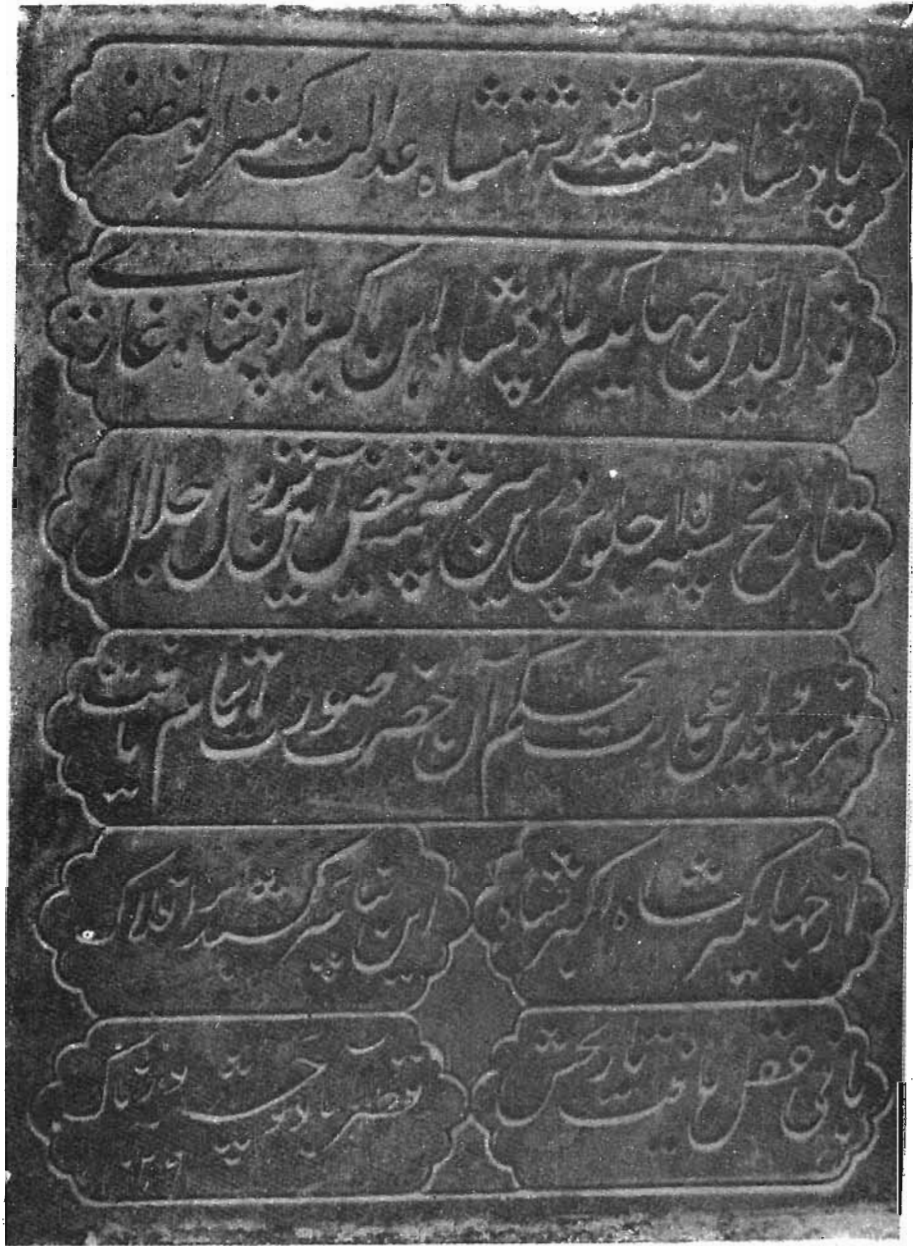 پادشاه هفت کشور شهنشاه عدالت گستر ابوالمظفر
نورالدین جهانگیر پادشاه ابن اکبر پادشاه غازے
بتاریخ سنه ۱۵ جلوس درین سرچشمه فیض آئین نزول اجلال
فرمودند این عمارت بحکم آن حضرت صورت اتمام یافت
از جهانگیر شاه اکبر شاه
این بنا سر کشید بر افلاک
بانی عقل یافت تاریخش
قصر آباد چشمه ورناک